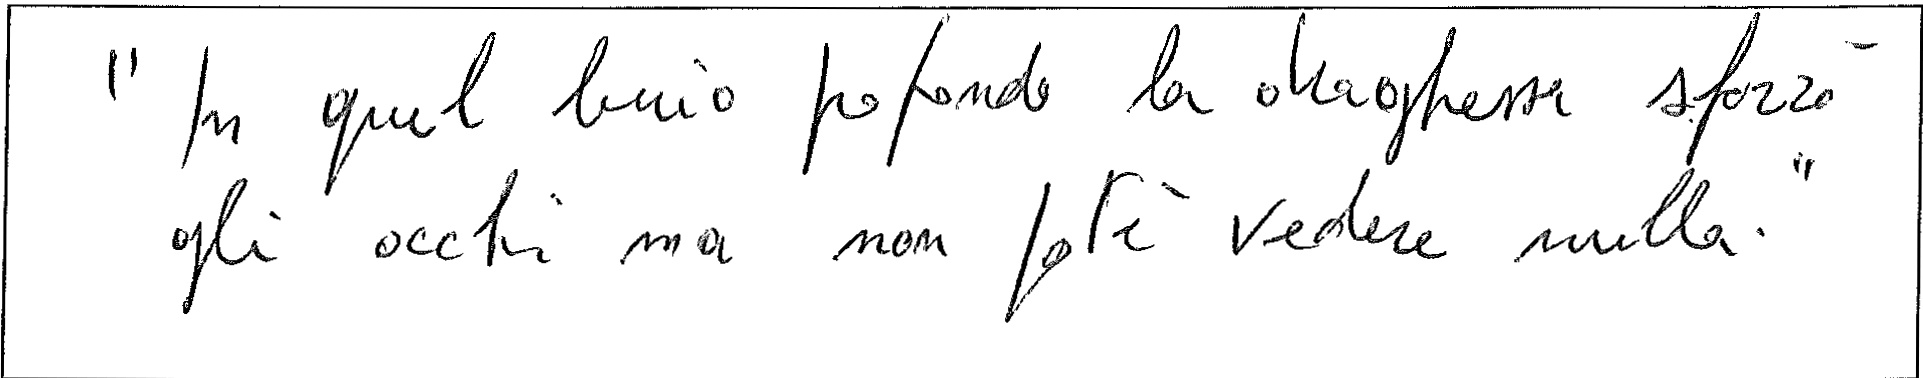 "In quel buio pofondo la draghessa sforzò
gli occhi ma non potè vedere nulla."